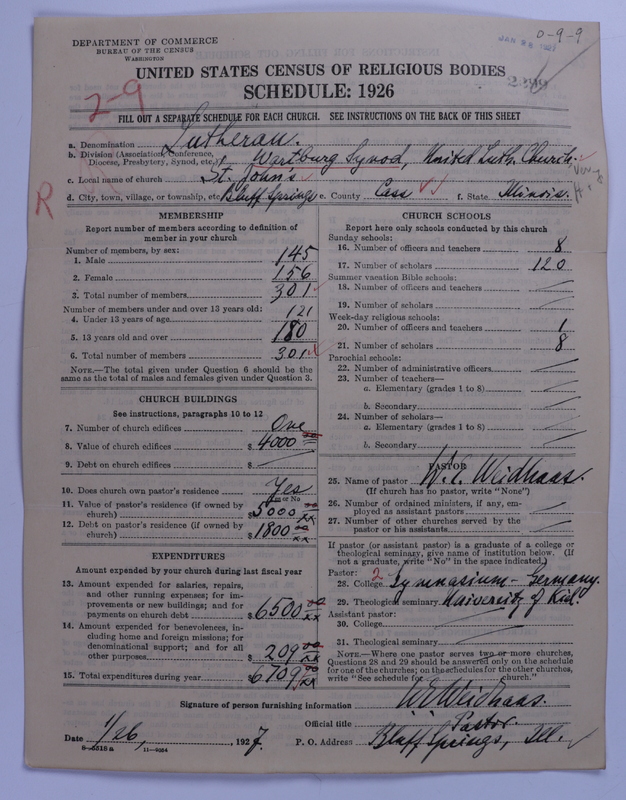 0-9-9
JAN 28 1927
DEPARTMENT OF COMMERCE
BUREAU OF THE CENSUS
WASHINGTON
UNITED STATES CENSUS OF RELIGIOUS BODIES
SCHEDULE: 1926
2-9
FILL OUT A SEPARATE SCHEDULE FOR EACH CHURCH. SEE INSTRUCTIONS ON THE BACK OF THIS SHEET
a. Denomination Lutheran.
b. Division (Association, Conference, Diocese, Presbytery, Synod, etc.) Wartburg Synod, United Luth. Church.
c. Local name of church St. John's
R
d. City, town, village, or township, etc. Bluff Springs e. County Cass f. State Illinois.
MEMBERSHIP
Report number of members according to definition of
member in your church
Number of members, by sex:
1. Male 145
2. Female 156
3. Total number of members 301
Number of members under and over 13 years old:
4. Under 13 years of age 121
5. 13 years old and over 180
6. Total number of members 301
NOTE.—The total given under Question 6 should be the
same as the total of males and females given under Question 3.
CHURCH BUILDINGS
See instructions, paragraphs 10 to 12
7. Number of church edifices One
8. Value of church edifices $ 4000
9. Debt on church edifices $
10. Does church own pastor's residence Yes
Yes or No
11. Value of pastor's residence (if owned by
church) $ 5000 00/xx
12. Debt on pastor's residence (if owned by
church) $ 1800 00/xx
EXPENDITURES
Amount expended by your church during last fiscal year
13. Amount expended for salaries, repairs,
and other running expenses; for im-
provements or new buildings; and for
payments on church debt $ 6500 00/xx
14. Amount expended for benevolences, in-
cluding home and foreign missions; for
denominational support; and for all
other purposes $ 209 00/xx
15. Total expenditures during year $ 6709 00/xx
CHURCH SCHOOLS
Report here only schools conducted by this church
Sunday schools:
16. Number of officers and teachers 8
17. Number of scholars 120
Summer vacation Bible schools:
18. Number of officers and teachers
19. Number of scholars
Week-day religious schools:
20. Number of officers and teachers 1
21. Number of scholars 8
Parochial schools:
22. Number of administrative officers
23. Number of teachers—
a. Elementary (grades 1 to 8)
b. Secondary
24. Number of scholars—
a. Elementary (grades 1 to 8)
b. Secondary
PASTOR
25. Name of pastor W. E. Weidhaas.
(If church has no pastor, write "None")
26. Number of ordained ministers, if any, em-
ployed as assistant pastors
27. Number of other churches served by the
pastor or his assistants
If pastor (or assistant pastor) is a graduate of a college or
theological seminary, give name of institution below. (If
not a graduate, write "No" in the space indicated.)
Pastor:
28. College 2 Gymnasium - Germany.
29. Theological seminary University of Kiel.
Assistant pastor:
30. College
31. Theological seminary
NOTE.—Where one pastor serves two or more churches,
Questions 28 and 29 should be answered only on the schedule
for one of the churches; on the schedules for the other churches,
write "See schedule for church."
Signature of person furnishing information W E Weidhaas.
Official title Pastor.
Date 1/26, 1927. P. O. Address Bluff Springs, Ill.
8-5515a 11-9354